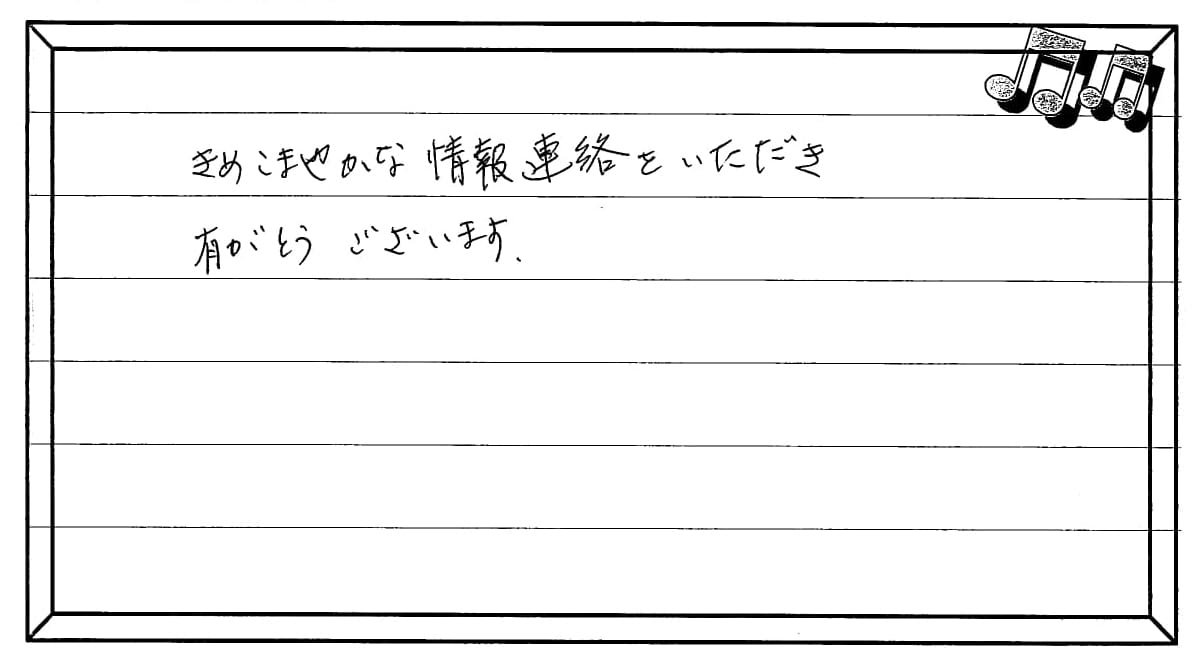 きめこまやかな情報連絡をいただき
有がとうございます。